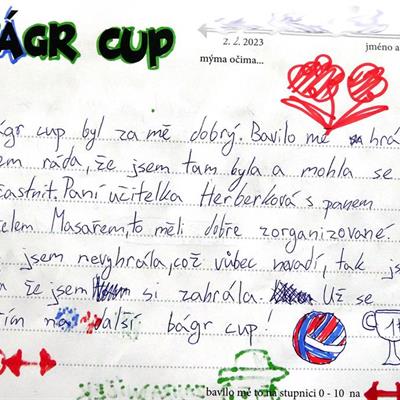 ÁGR CUP
2. 2. 2023
jméno a
mýma očima...
ágr cup byl za mě dobrý. Bavilo mě hrá
em ráda, že jsem tam byla a mohla se
častnit. Paní učitelka Herberková s panem
telem Masařem, to měli dobře zorganizované
jsem nevyhrála, což vůbec nevadí, tak js
a že jsem si zahrála. Už se
ším na další bágr cup!
bavilo mě to na stupnici 0 - 10 na